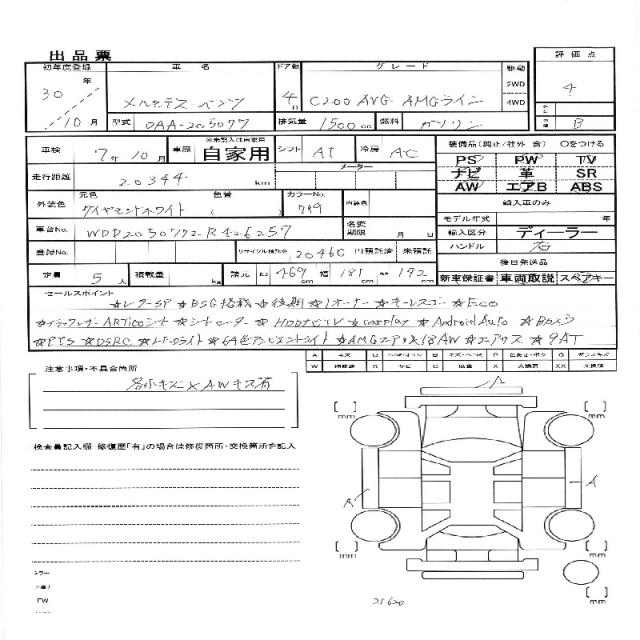 出品票
初年度登録 車名 ドア数 グレード 駆動 評価点
30年 メルセデス・ベンツ 4D C200 AVG AMGライン 2WD 4WD 4
10月 型式 DAA-205077 排気量 1500cc 燃料 ガソリン B
車検 7年10月 車歴 ※未記入は自家用 自家用 シフト AT 冷房 AC 装備品(純正/社外 含) 〇をつける
走行距離 20344 km メーター
PS PW TV
ナビ 革 SR
AW エアB ABS
外装色 元色 ダイヤモンドホワイト 色替 ( ) カラーNo. 799 内装色
輸入車のみ
モデル年式 年
車台No. WDD2050772-R426257 名変期限 月 日 輸入区分 ディーラー
登録No. リサイクル預託金 20460 円 預託済 未預託 ハンドル 右
後日発送品
定員 5人 積載量 kg 諸元 長さ 469 cm 幅 181 cm 高さ 142 cm 新車保証書 車両取説 スペアキー
セールスポイント
☆レーダーSP ☆BSG搭載 ☆後期 ☆1オーナー ☆キーレスゴー ☆Eco
☆ブラックレザーARTICOシート ☆シートヒーター ☆HDDナビTV ☆carplay ☆Android Auto ☆Bカメラ
☆PTS ☆DSRC ☆LEDライト ☆64色アンビエントライト ☆AMGエアロ ☆18AW ☆エアサス ☆9AT
注意事項・不具合箇所
各小キズ × AWキズ有
検査員記入欄・修復歴「有」の場合は修復箇所・交換箇所含記入
A キズ U B P G
W S C X XX
A
A
A
mm mm
mm mm
mm